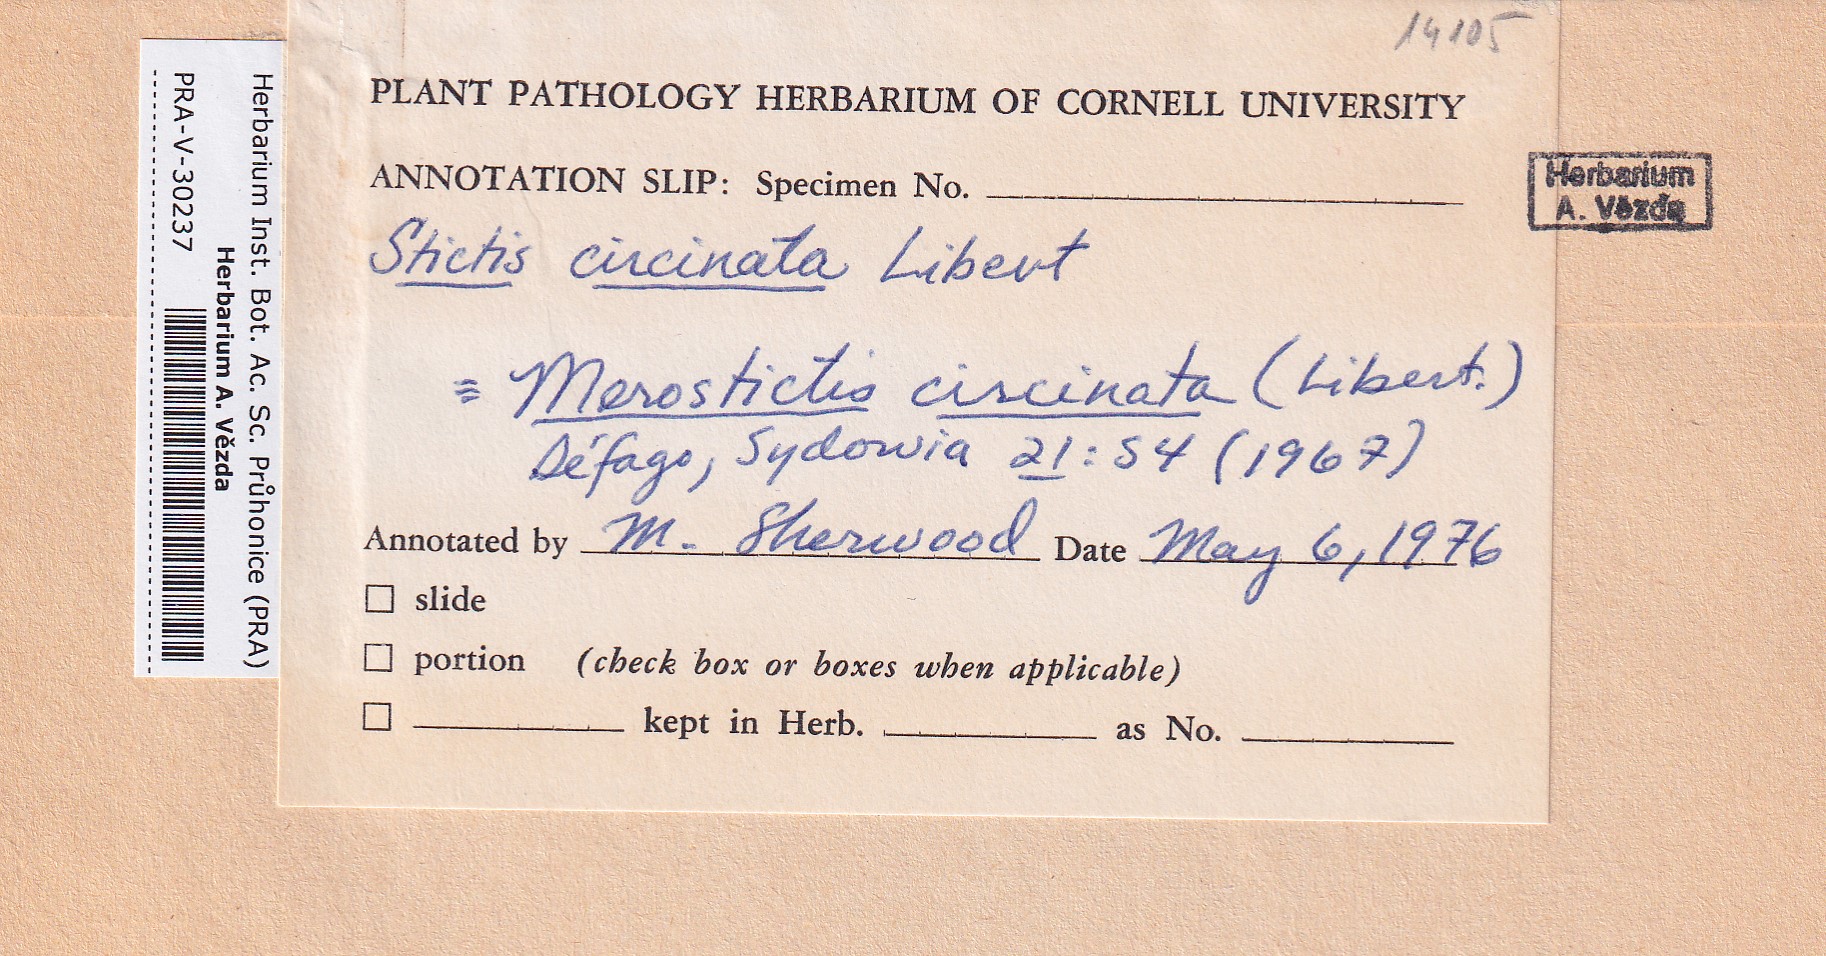 14105
PLANT PATHOLOGY HERBARIUM OF CORNELL UNIVERSITY
ANNOTATION SLIP: Specimen No.
Stictis circinata Libert
≡ Merostictis circinata (Libert.)
Défago, Sydowia 21:54 (1967)
Annotated by M. Sherwood Date May 6, 1976
slide
portion (check box or boxes when applicable)
kept in Herb. as No.
Herbarium
A. Vězda
Herbarium Inst. Bot. Ac. Sc. Průhonice (PRA)
Herbarium A. Vězda
PRA-V-30237